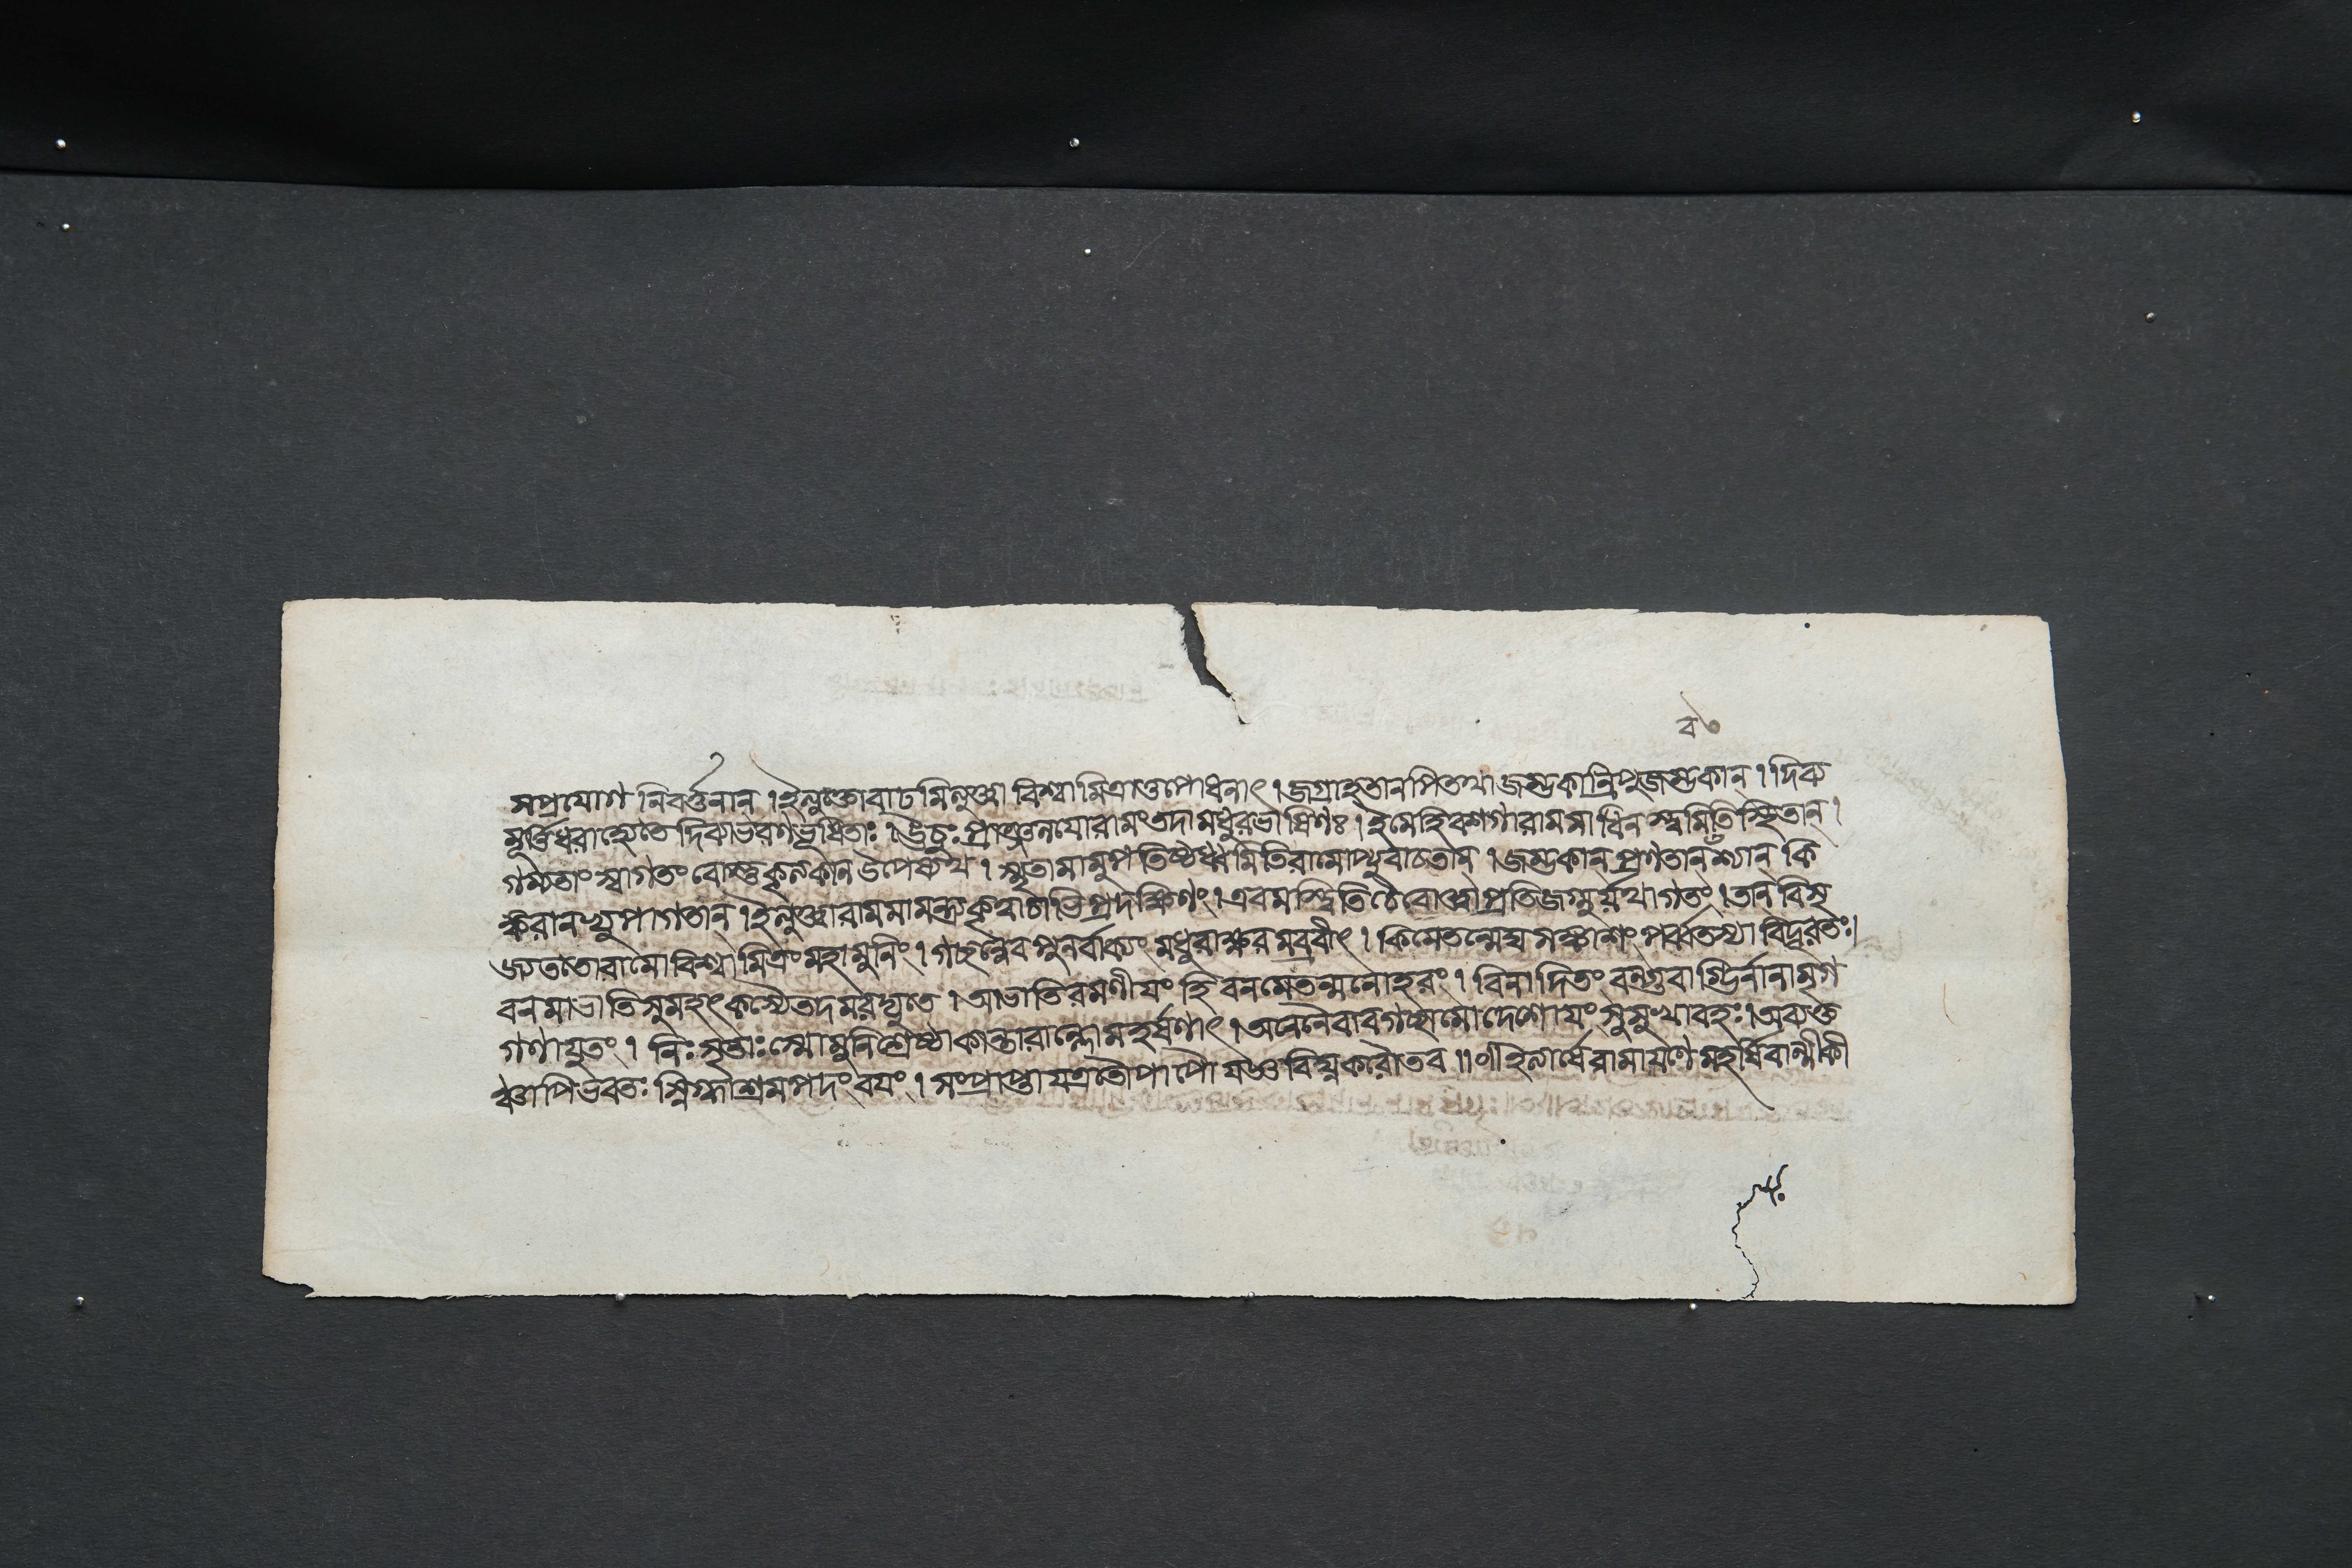 ব৬
সপ্রযোগ নিবর্ত্তনান্ । ইত্যুক্তোবাঢমিত্যুক্ত্বা বিশ্বামিত্রাত্তপোধনাৎ । জগ্রাহতানপিতথা জম্ভকান্রিপুজম্ভকান্ । দিব্য
মূর্ত্তিধরাহ্যেতে দিব্যাভরণভূষিতাঃ । ঊচুঃ প্রাঞ্জনযোরামংতদামধুরভাষিণঃ । ইমেহিবশগারামমাধিনস্ত্বমিতিস্থিতান্ ।
গম্যতাং স্বাগতং বোস্তু কৃত্যকান উপৈষ্যথ । স্মৃতামামুপতিষ্ঠধ্বমিতিরামোপ্যুবাচতান্ । জম্ভকান্ প্রণতান্ শ্যান্ কি
ঙ্করানভ্যুপাগতান্ । ইত্যুক্ত্বারামমামন্ত্র্যকৃত্বাচাভিপ্রদক্ষিণং । এবমস্ত্বিতিচৈবোক্ত্বাপ্রতিজগ্মুর্যথাগতং । তান্ বিসৃ
জ্যততোরামো বিশ্বামিত্রং মহামুনিং । গচ্ছন্নেব পুনর্বাক্যং মধুরাক্ষরমব্রবীৎ । কিমেতন্মেঘসঙ্কাশং পর্ব্বতস্যাবিদূরতঃ।
বনমাভাতিসুমহৎ কস্যৈতদমরদ্যুতে । আভাতিরমণীযং হি বনমেতন্মনোহরং । বিনাদিতং বল্গুবাগ্ভির্নানামৃগ
গণাযুতং । নিঃসৃতাঃস্মোমুনিশ্রেষ্ঠাকান্তারাল্লোমহর্ষণাৎ । অনেনৈবাবগচ্ছামোদেশোযং সুসুখাবহঃ । অব্যক্ত
ঞ্চাপিভবতঃ স্নিগ্ধাশ্রমপদং বযং । সংপ্রাপ্তা যত্রতৌপাপৌ যজ্ঞবিঘ্নকরৌতব ॥০॥ ইত্যার্ষেরামাযণে মহর্ষিবাল্মীকী